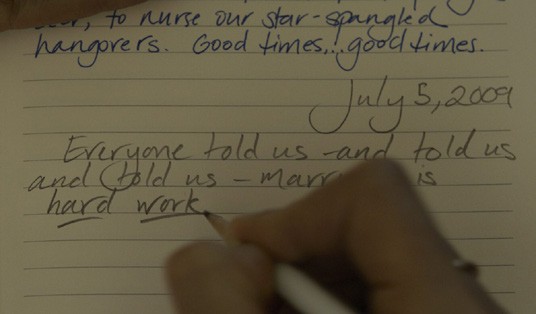 to nurse our star-spangled
hangovers. Good times...good times.
July 5, 2009
Everyone told us -and told us
and told us - is
hard work